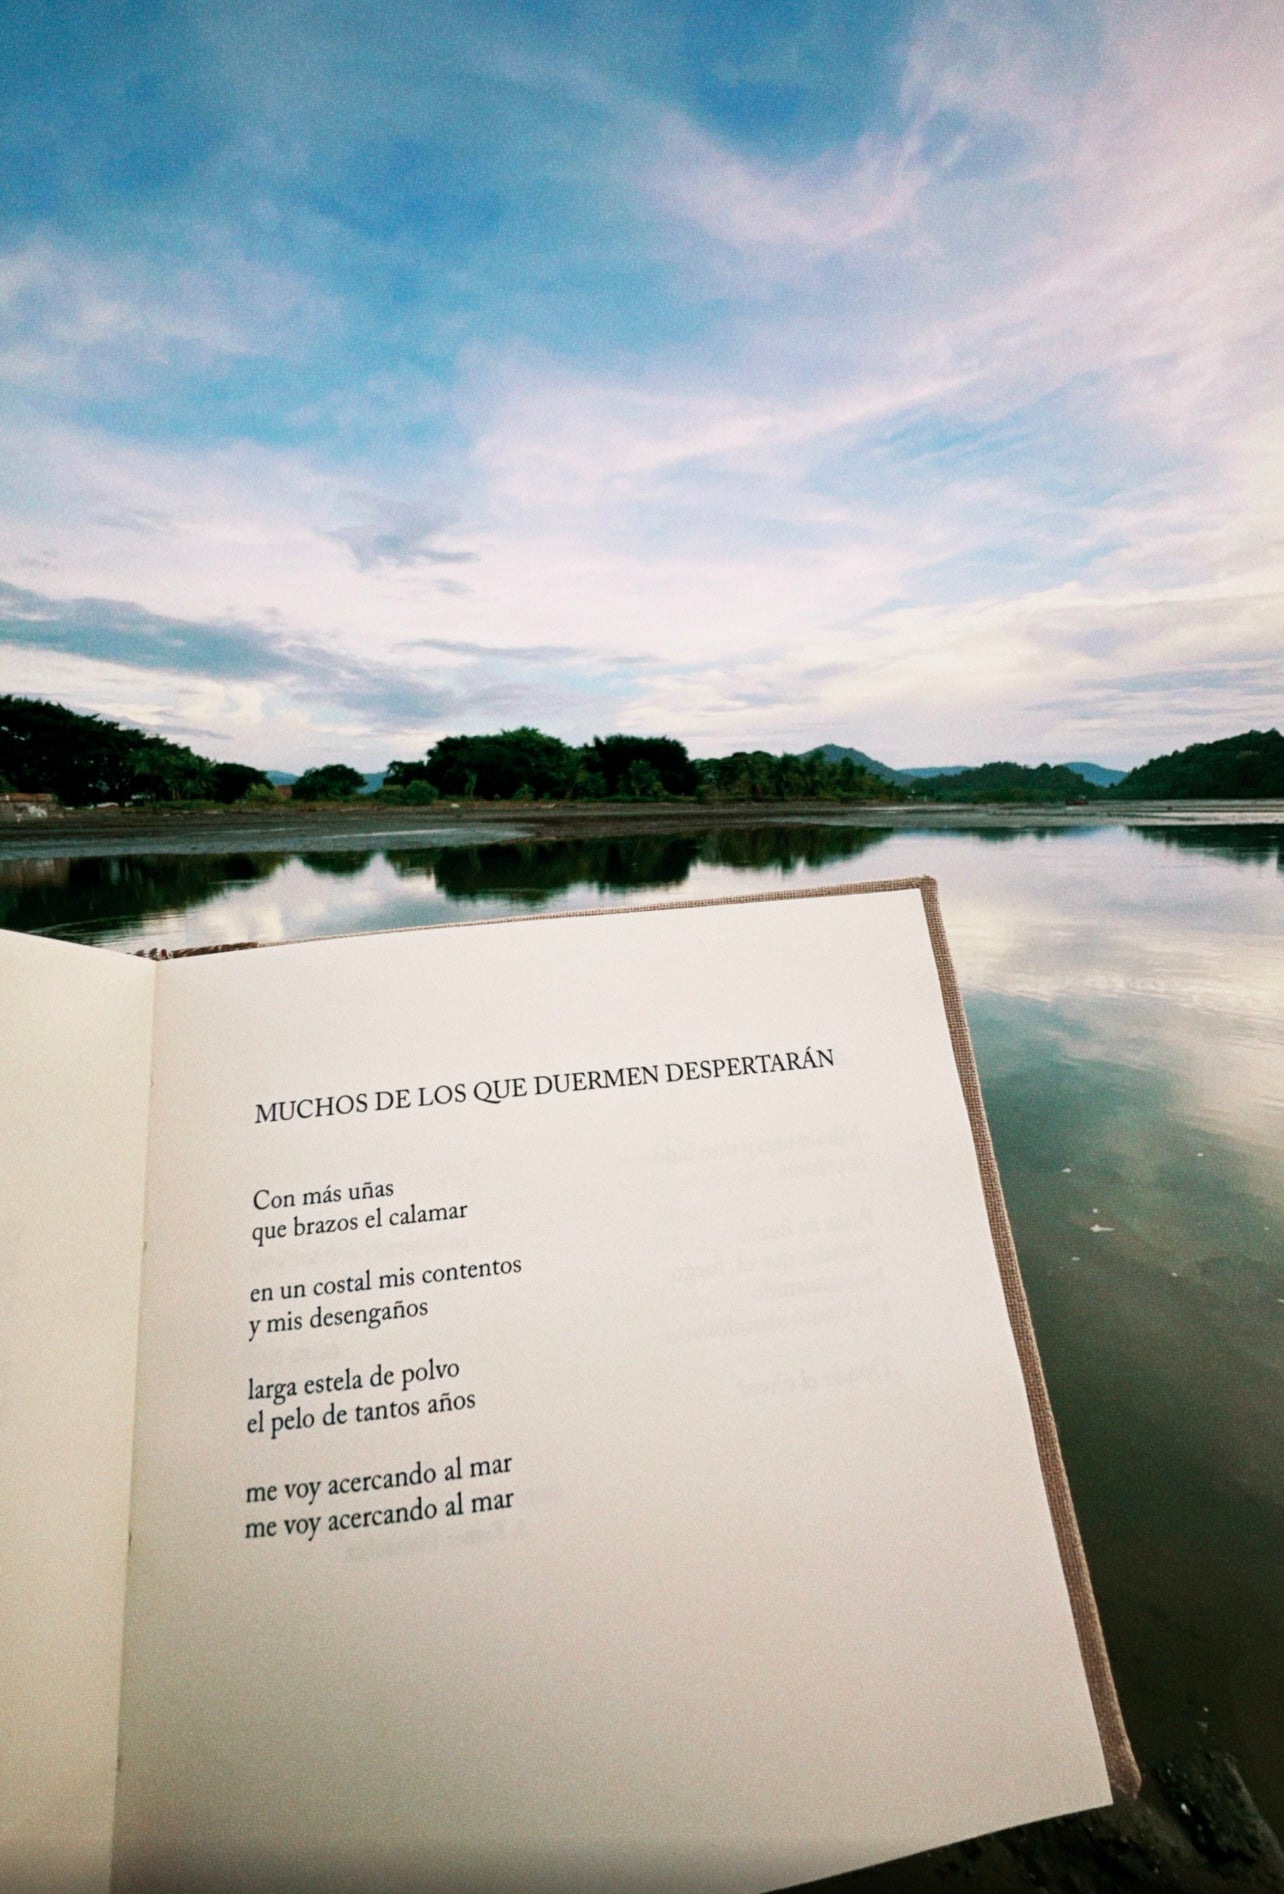 MUCHOS DE LOS QUE DUERMEN DESPERTARÁN
Con más uñas
que brazos el calamar
en un costal mis contentos
y mis desengaños
larga estela de polvo
el pelo de tantos años
me voy acercando al mar
me voy acercando al mar